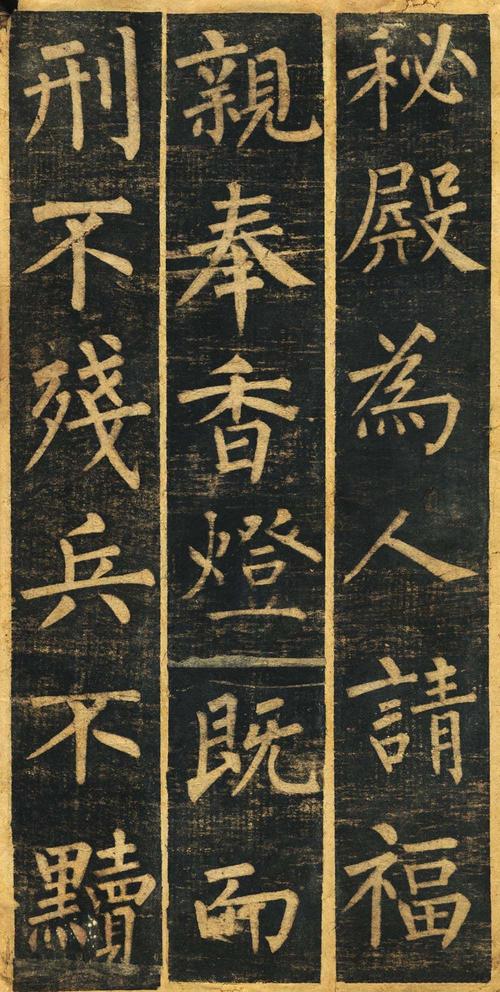 秘殿為人請福
親奉香燈既而
刑不殘兵不黷